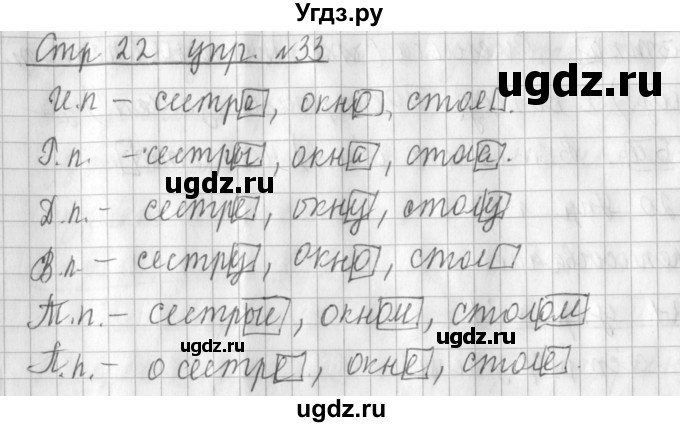 Угдз.ру
Стр 22 упр. №33
ugdz.ru
И.п – сестра, окно, стол.
Р.п. – сестры, окна, стола.
ugdz.ru
ugdz.ru
Д.п. – сестре, окну, столу
В.п. – сестру, окно, стол
Т.п. – сестрые, окном, столом
ugdz.ru
ugdz.ru
П.п. – о сестре, окне, столе.
ugdz.ru